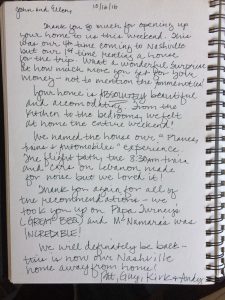 John and Ellen, 10/16/16
Thank you so much for opening up
your home to us this weekend. This
was our 4th time coming to Nashville
but our 1st time renting a house
for the trip. What a wonderful surprise
at how much more you get for your
money - not to mention the ammenities!
Your home is ABSOLUTELY beautiful
and accomodating. From the
kitchen to the bedrooms, we felt
at home the entire weekend!
We named the house our "Planes,
trains & automobiles" experience.
The flight path, the 3:30am train
and cars on Lebanon made
for noise but we loved it!
Thank you again for all of
the recommendations - we
took you up on Papa Turneys
(GREAT BBQ) and McNamaras was
INCREDIBLE!
We will definately be back -
this is now our Nashville
home away from home!
Pat, Guy, Kirk & Andy